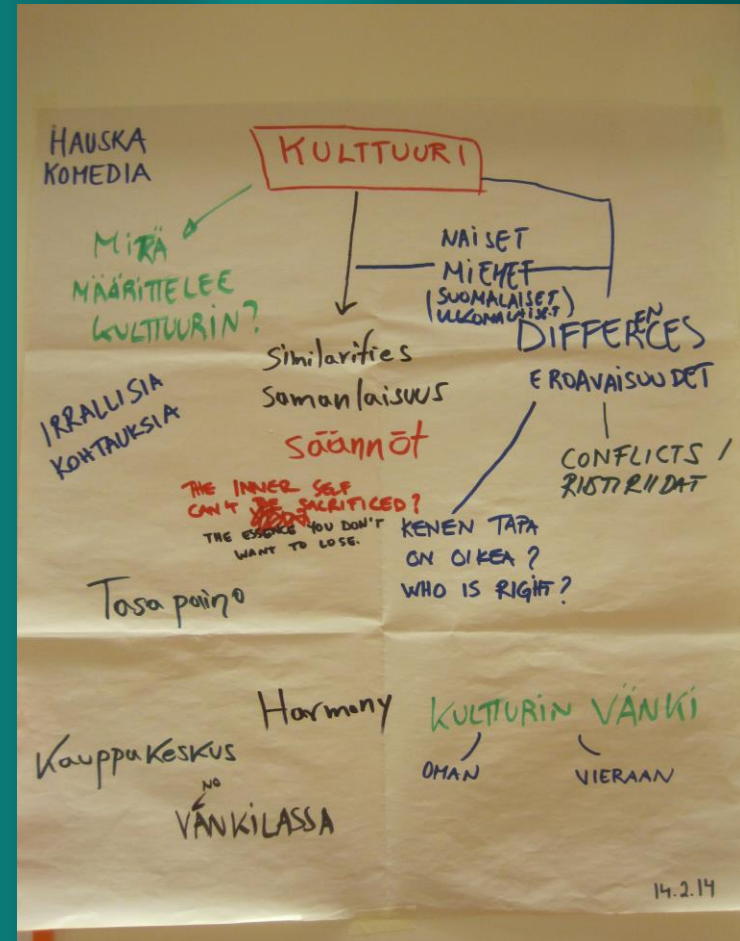 HAUSKA
KOMEDIA
KULTTUURI
MITÄ
MÄÄRITTELEE
KULTTUURIN?
NAISET
MIEHET
(SUOMALAISET
ULKOMALAISET)
Similarities
Samanlaisuus
DIFFERENCES
EROAVAISUUDET
IRRALLISIA
KOHTAUKSIA
säännöt
CONFLICTS /
RISTIRIIDAT
THE INNER SELF
CAN'T BE SACRIFICED?
THE ESSENCE YOU DON'T
WANT TO LOSE.
KENEN TAPA
ON OIKEA?
WHO IS RIGHT?
Tasapaino
Harmony
KULTTURIN VÄNKI
OMAN
VIERAAN
Kauppakeskus
NO
VÄNKILASSA
14.2.14